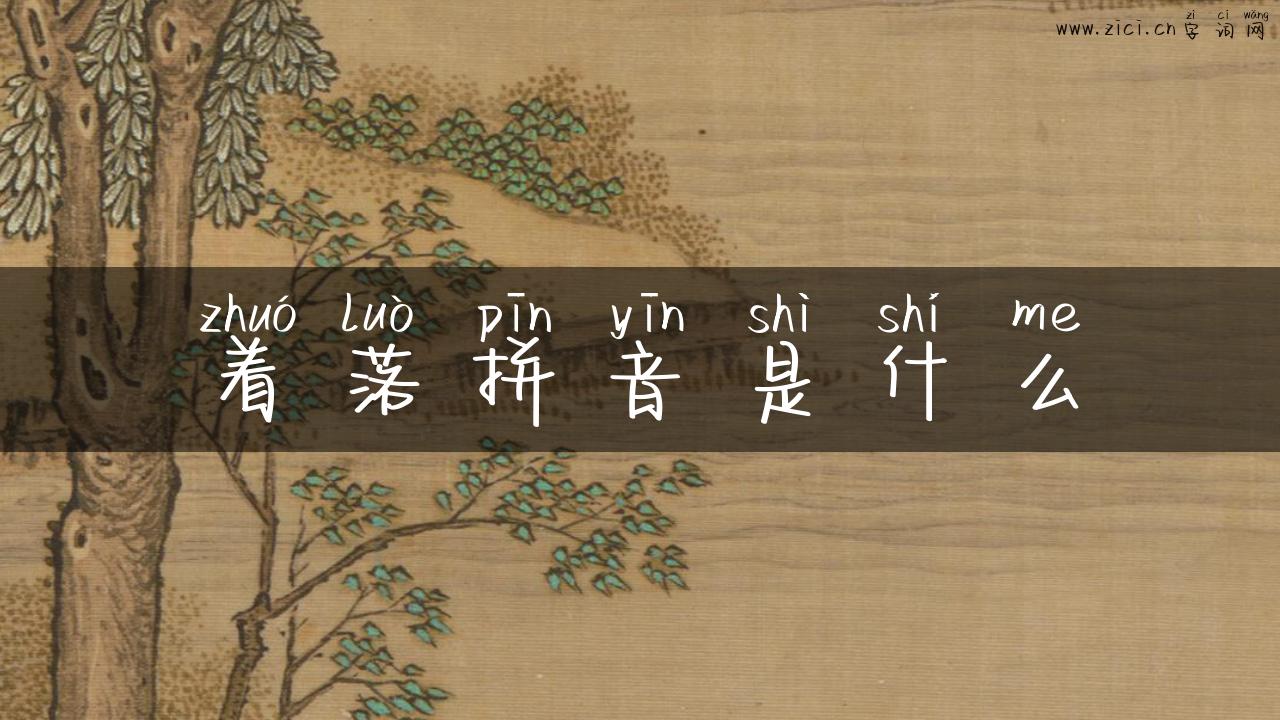 zì cí wǎng
www.zici.cn字词网
zhuó luò pīn yīn shì shí me
着落拼音是什么